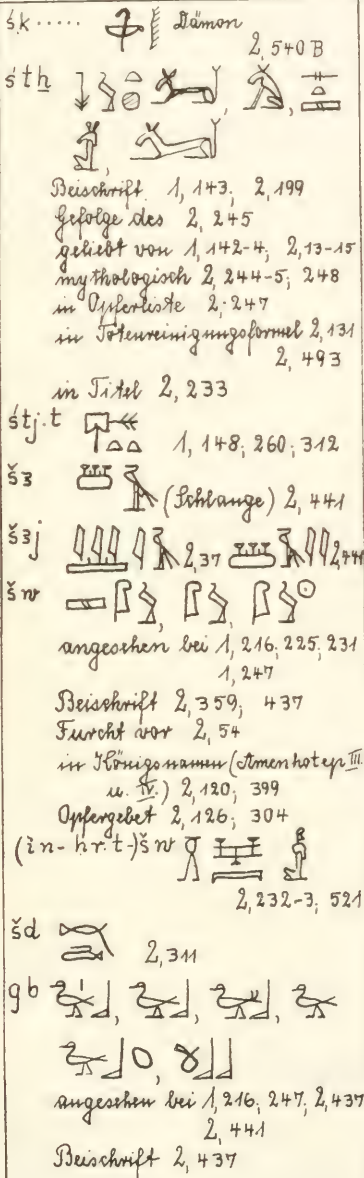 śk ..... Dämon
2, 540 B
śtḫ
Beischrift 1, 143; 2, 199
Gefolge des 2, 245
geliebt von 1, 142-4; 2, 13-15
mythologisch 2, 244-5; 248
in Opferliste 2, 247
in Totenreinigungsformel 2, 131
2, 493
in Titel 2, 233
śtj.t 1, 148; 260; 312
šꜣ (Schlange) 2, 441
šꜣj 2, 37 2, 441
šw
angesehen bei 1, 216; 225; 231
1, 247
Beischrift 2, 359; 437
Furcht vor 2, 54
in Königsnamen (Amenhotep III.
u. IV.) 2, 120; 399
Opfergebet 2, 126; 304
(in-ḥr.t-)šw
2, 232-3; 521
šd 2, 311
gb
angesehen bei 1, 216; 247; 2, 437
2, 441
Beischrift 2, 437